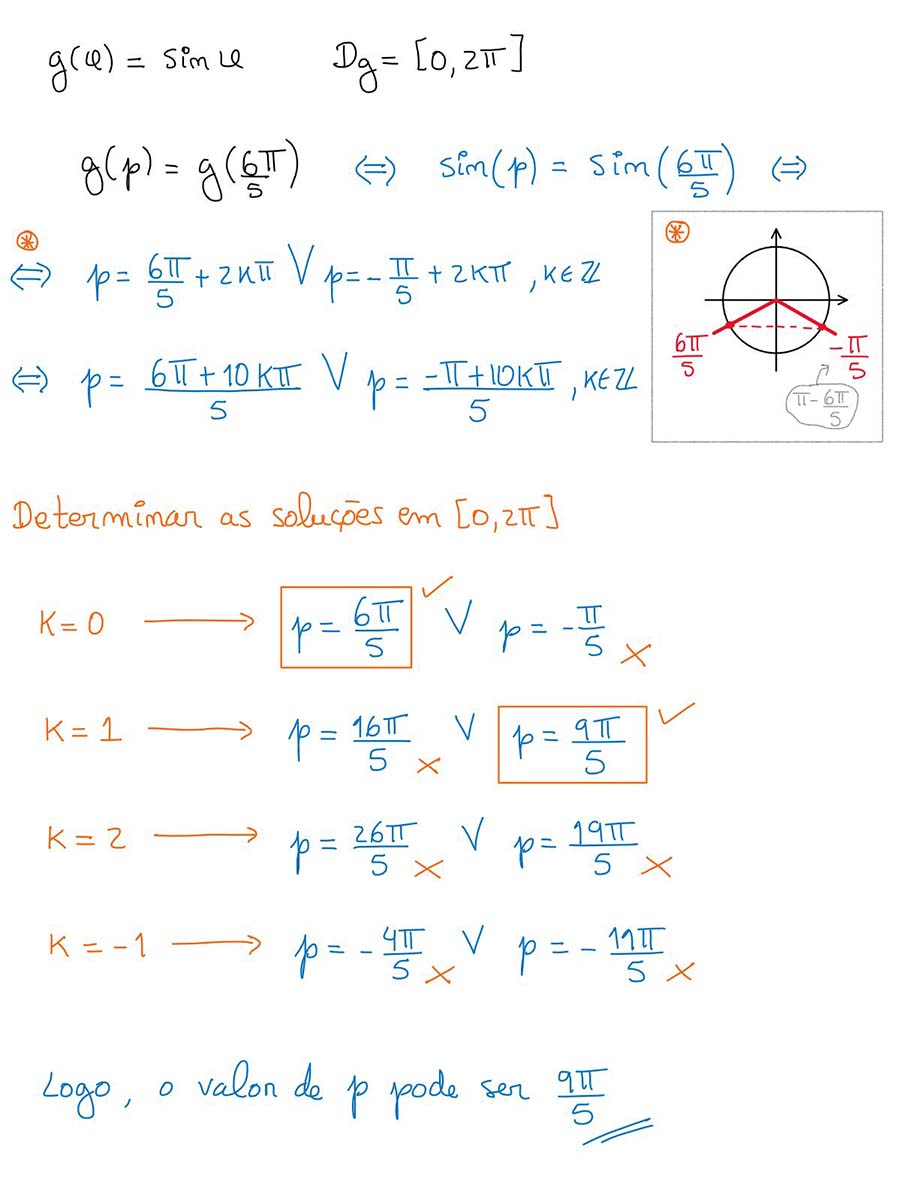 g(x) = sin x Dg = [0, 2π]
g(p) = g(6π/5) ⇔ sin(p) = sin(6π/5) ⇔
⊛
⇔ p = 6π/5 + 2kπ ∨ p = -π/5 + 2kπ, k∈ℤ
⇔ p = (6π + 10kπ)/5 ∨ p = (-π + 10kπ)/5, k∈ℤ
⊛
6π/5
-π/5
π - 6π/5
Determinar as soluções em [0, 2π]
k = 0 → p = 6π/5 ✓ ∨ p = -π/5 ×
k = 1 → p = 16π/5 × ∨ p = 9π/5 ✓
k = 2 → p = 26π/5 × ∨ p = 19π/5 ×
k = -1 → p = -4π/5 × ∨ p = -11π/5 ×
Logo, o valor de p pode ser 9π/5